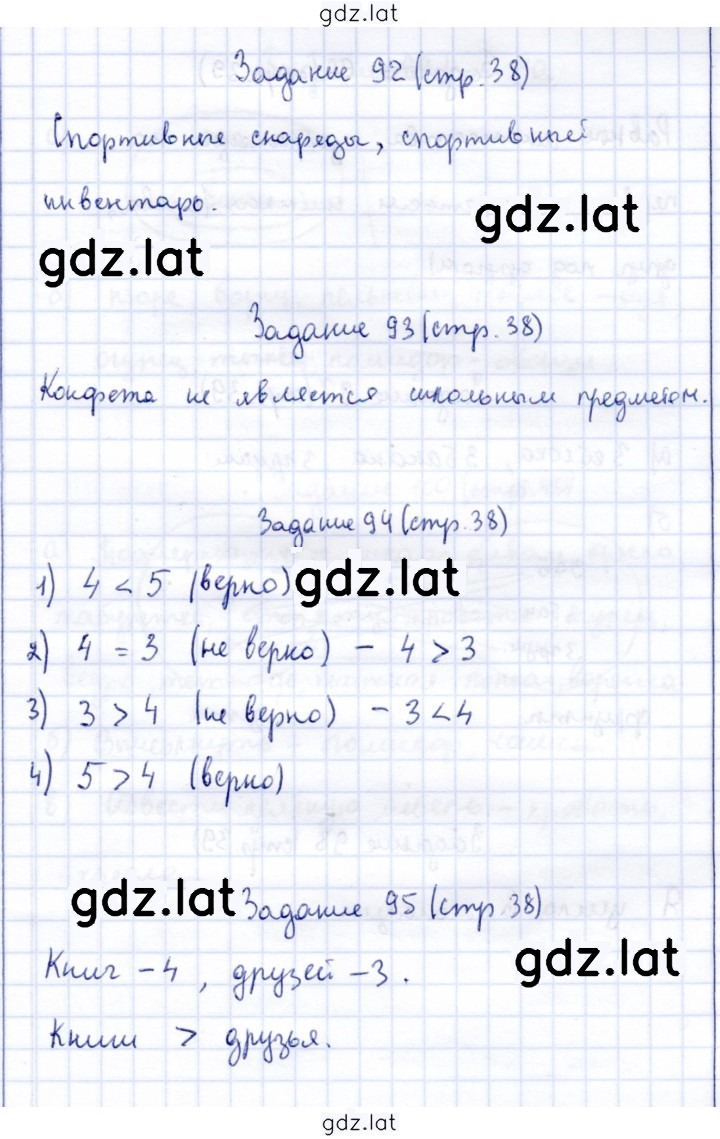 gdz.lat
Задание 92 (стр. 38)
Спортивные снаряды, спортивный
инвентарь.
gdz.lat
gdz.lat
Задание 93 (стр. 38)
Конфета не является школьным предметом.
Задание 94 (стр. 38)
1) 4 < 5 (верно)
gdz.lat
2) 4 = 3 (не верно) - 4 > 3
3) 3 > 4 (не верно) - 3 < 4
4) 5 > 4 (верно)
gdz.lat
Задание 95 (стр. 38)
Книг - 4, друзей - 3.
gdz.lat
Книги > друзья.
gdz.lat